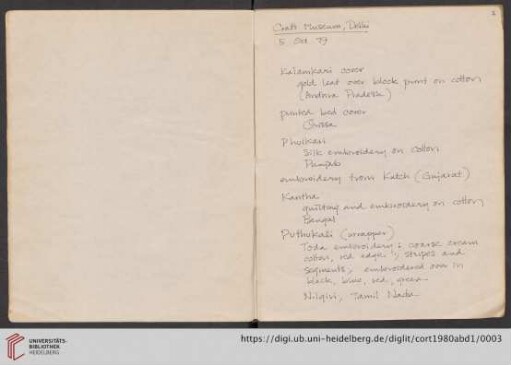 2
Craft Museum, Delhi
5 Oct 79
Kalamkari cover
gold leaf over block print on cotton
(Andhra Pradesh)
printed bed cover
Orissa
Phulkari
silk embroidery on cotton
Punjab
embroidery from Kutch (Gujarat)
Kantha
quilting and embroidery on cotton
Bengal
Puthukali (wrapper)
Toda embroidery: coarse cream
cotton, red stripes and
segments, embroidered over in
black, blue, red, green
Nilgiri, Tamil Nadu
UNIVERSITÄTS-
BIBLIOTHEK
HEIDELBERG
https://digi.ub.uni-heidelberg.de/diglit/cort1980abd1/0003